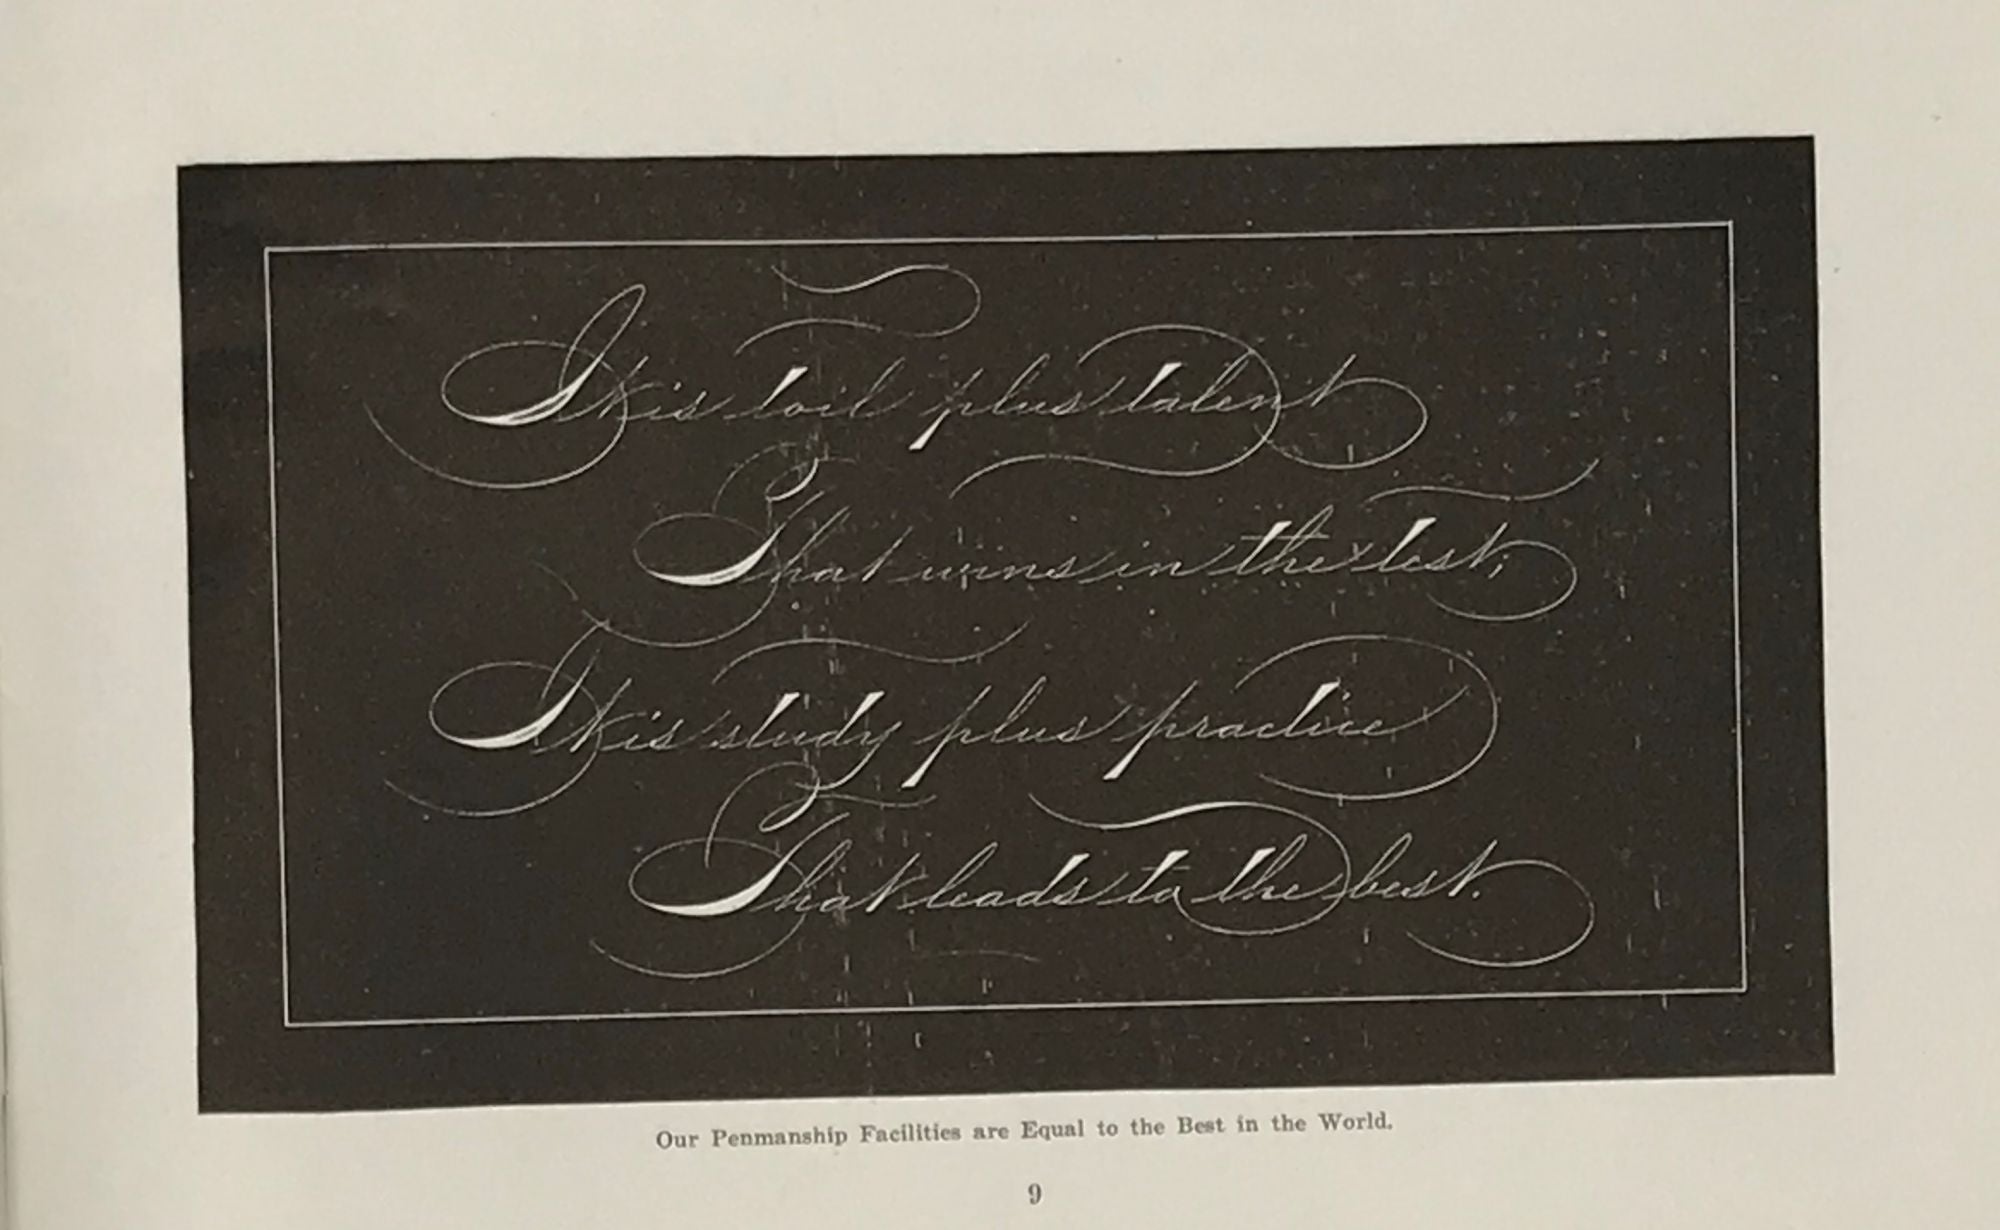 'Tis toil plus talent
That wins in the test;
'Tis study plus practice
That leads to the best.
Our Penmanship Facilities are Equal to the Best in the World.
9